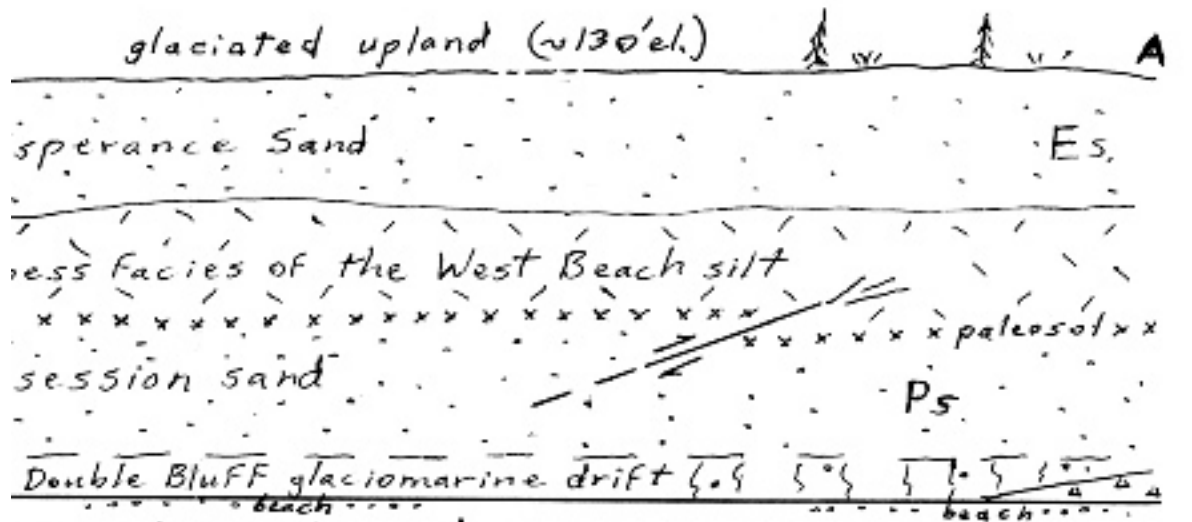 glaciated upland (~130'el.)
A
sperance Sand
Es.
ess facies of the West Beach silt
paleosol
session sand
Ps
Double Bluff glaciomarine drift
beach
beach